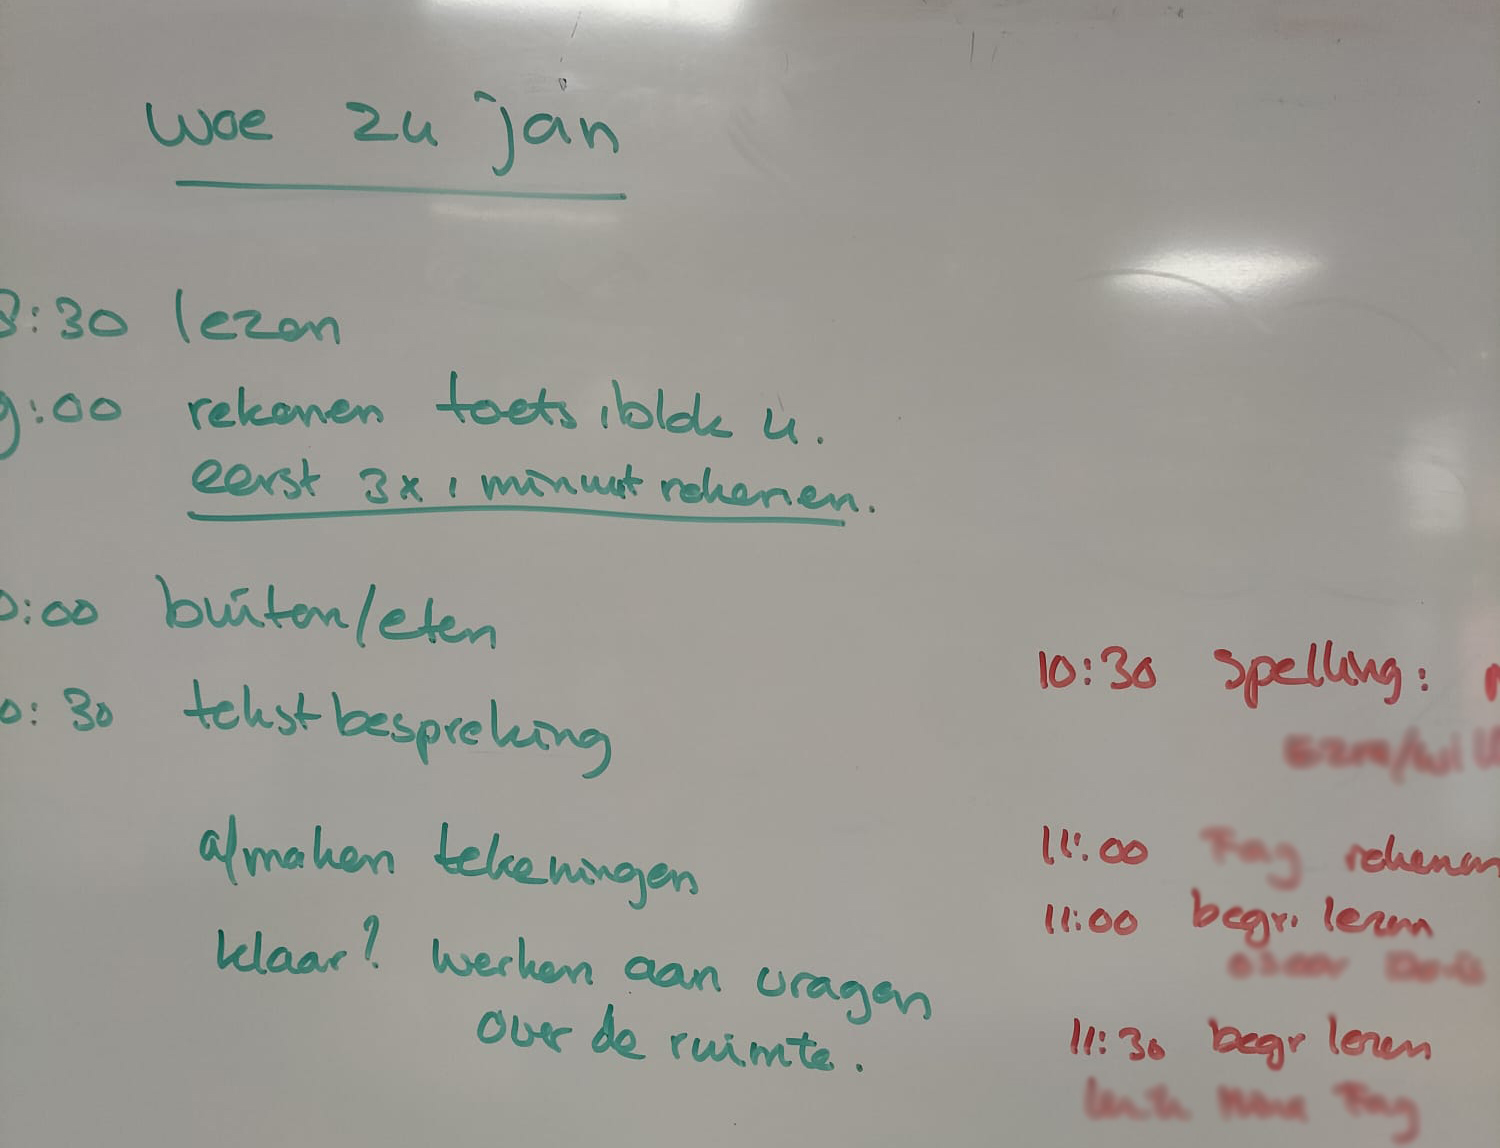 woe 24 jan
8:30 lezen
9:00 rekenen toets blok 4.
eerst 3x 1 minuut rekenen.
0:00 buiten/eten
0:30 tekstbespreking
afmaken tekeningen
klaar? werken aan vragen
over de ruimte.
10:30 Spelling:
11:00 rekenen
11:00 begr. lezen
11:30 begr lezen